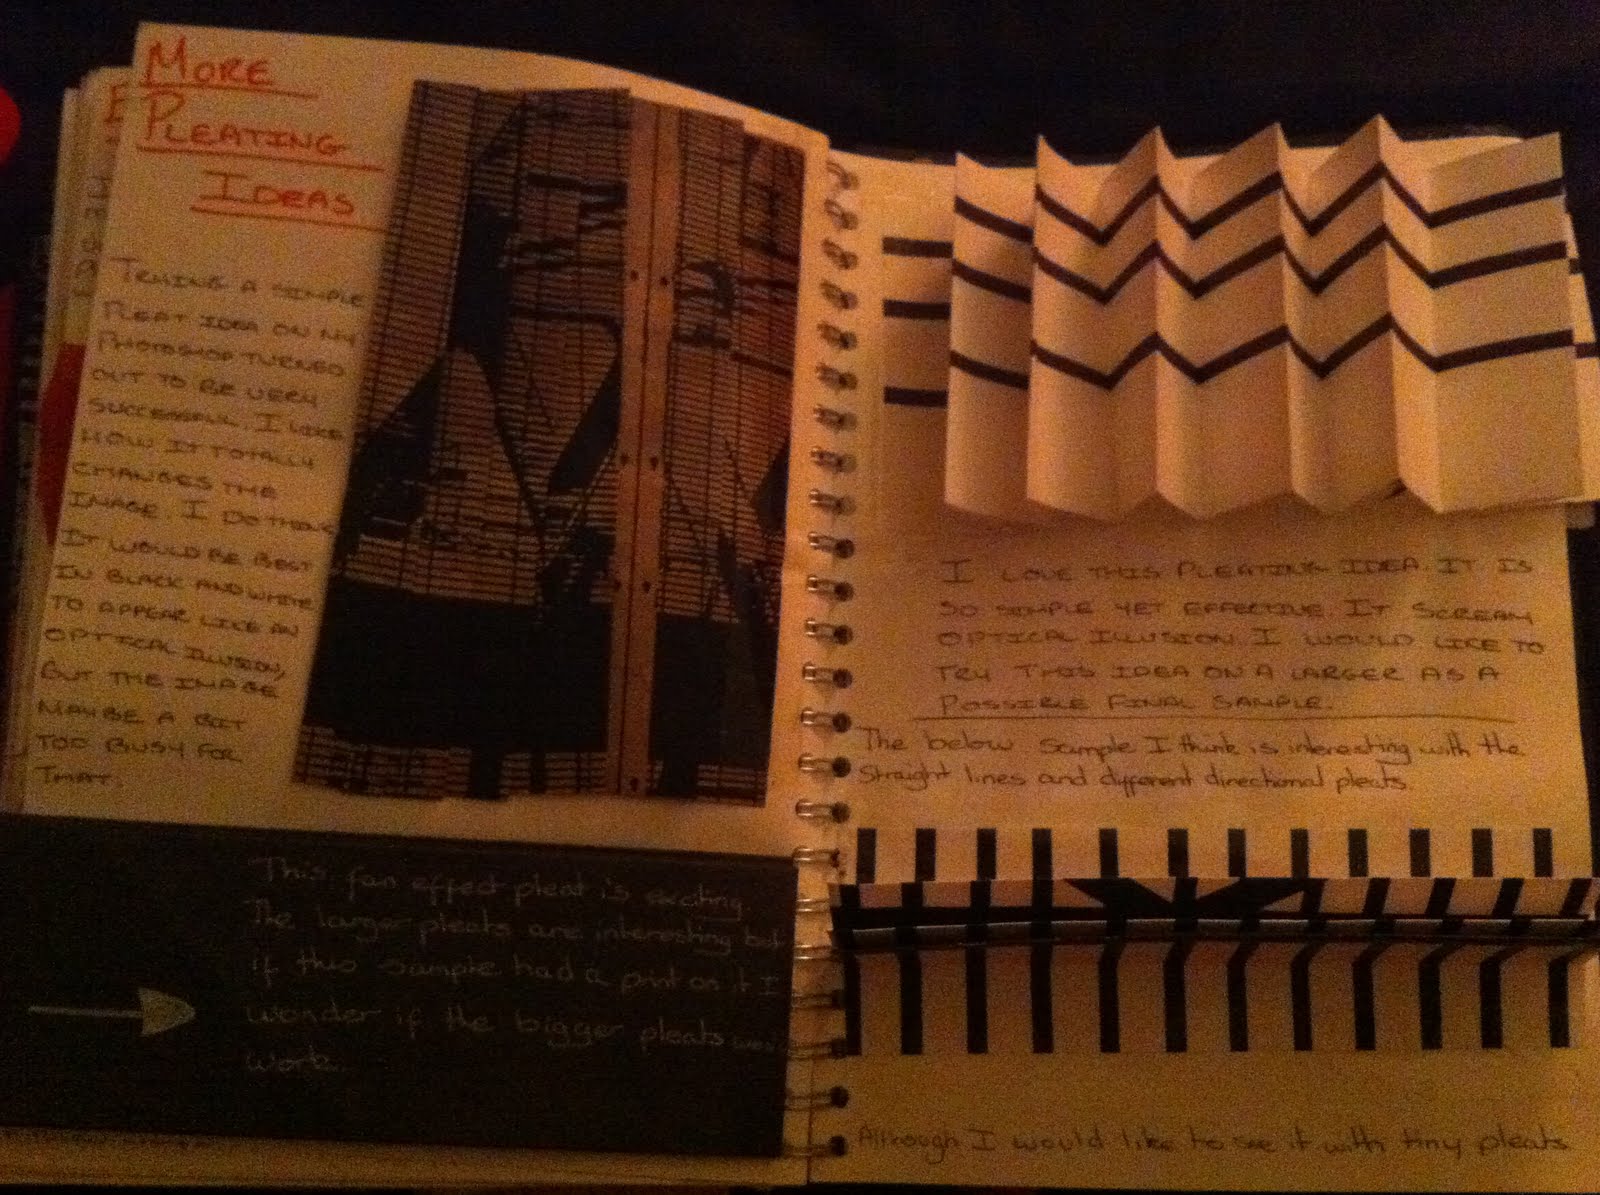 More
Pleating
Ideas
Trying a simple
pleat idea on my
photoshop turned
out to be very
successful. I like
how it totally
changes the
image. I do think
it would be best
in black and white
to appear like an
optical illusion,
but the image
maybe a bit
too busy for
that.
This fan effect pleat is exciting.
The larger pleats are interesting but
if this sample had a print on it I
wonder if the bigger pleats
work.
I love this pleating idea. It is
so simple yet effective. It scream
optical illusion. I would like to
try this idea on a larger as a
possible final sample.
The below sample I think is interesting with the
straight lines and different directional pleats.
Although I would like to see it with tiny pleats